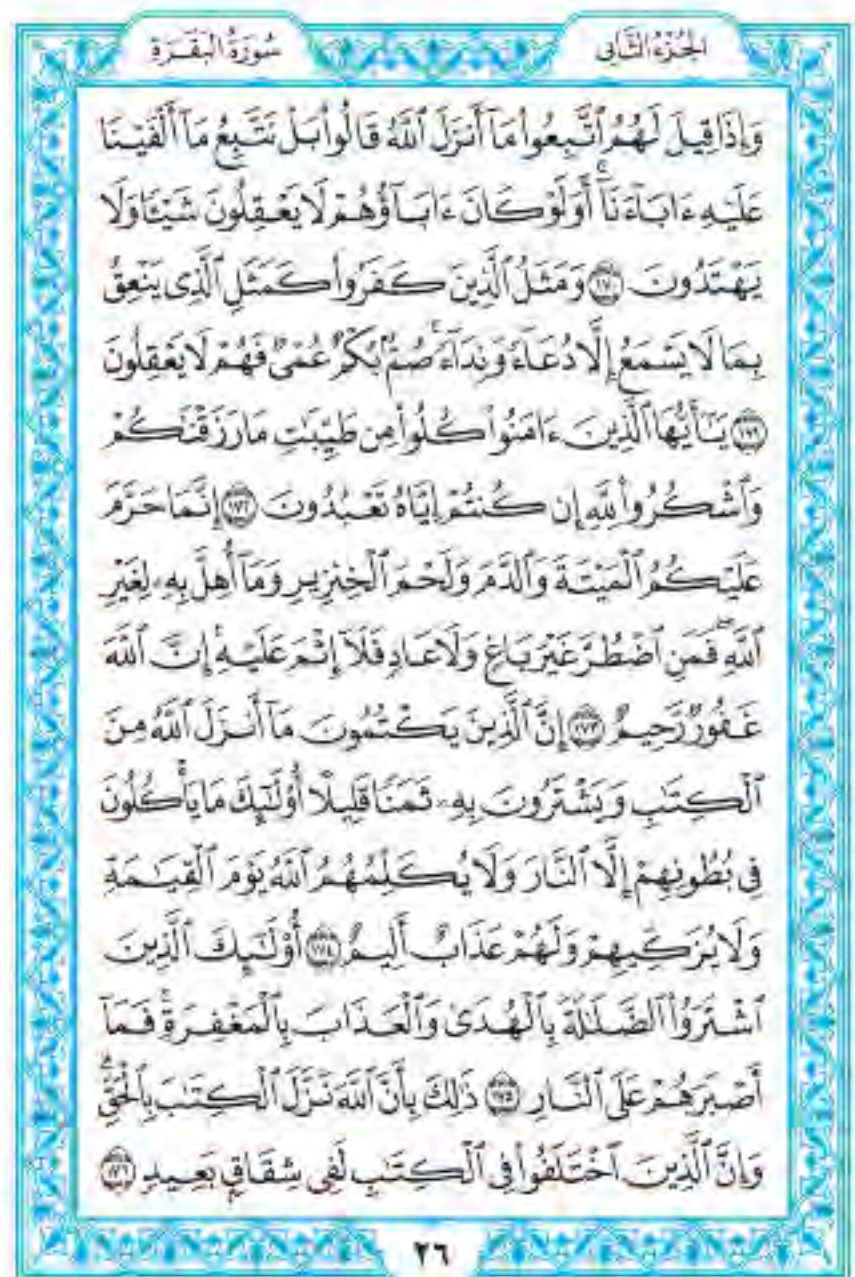 الجُزْءُ الثَّانِي
سُورَةُ البَقَرَةِ
وَإِذَا قِيلَ لَهُمُ ٱتَّبِعُوا۟ مَآ أَنزَلَ ٱللَّهُ قَالُوا۟ بَلْ نَتَّبِعُ مَآ أَلْفَيْنَا
عَلَيْهِ ءَابَآءَنَآ ۚ أَوَلَوْ كَانَ ءَابَآؤُهُمْ لَا يَعْقِلُونَ شَيْـًٔا وَلَا
يَهْتَدُونَ ﴿١٧٠﴾ وَمَثَلُ ٱلَّذِينَ كَفَرُوا۟ كَمَثَلِ ٱلَّذِى يَنْعِقُ
بِمَا لَا يَسْمَعُ إِلَّا دُعَآءً وَنِدَآءً ۚ صُمٌّۢ بُكْمٌ عُمْىٌ فَهُمْ لَا يَعْقِلُونَ
﴿١٧١﴾ يَـٰٓأَيُّهَا ٱلَّذِينَ ءَامَنُوا۟ كُلُوا۟ مِن طَيِّبَـٰتِ مَا رَزَقْنَـٰكُمْ
وَٱشْكُرُوا۟ لِلَّهِ إِن كُنتُمْ إِيَّاهُ تَعْبُدُونَ ﴿١٧٢﴾ إِنَّمَا حَرَّمَ
عَلَيْكُمُ ٱلْمَيْتَةَ وَٱلدَّمَ وَلَحْمَ ٱلْخِنزِيرِ وَمَآ أُهِلَّ بِهِۦ لِغَيْرِ
ٱللَّهِ ۖ فَمَنِ ٱضْطُرَّ غَيْرَ بَاغٍ وَلَا عَادٍ فَلَآ إِثْمَ عَلَيْهِ ۚ إِنَّ ٱللَّهَ
غَفُورٌ رَّحِيمٌ ﴿١٧٣﴾ إِنَّ ٱلَّذِينَ يَكْتُمُونَ مَآ أَنزَلَ ٱللَّهُ مِنَ
ٱلْكِتَـٰبِ وَيَشْتَرُونَ بِهِۦ ثَمَنًا قَلِيلًا أُو۟لَـٰٓئِكَ مَا يَأْكُلُونَ
فِى بُطُونِهِمْ إِلَّا ٱلنَّارَ وَلَا يُكَلِّمُهُمُ ٱللَّهُ يَوْمَ ٱلْقِيَـٰمَةِ
وَلَا يُزَكِّيهِمْ وَلَهُمْ عَذَابٌ أَلِيمٌ ﴿١٧٤﴾ أُو۟لَـٰٓئِكَ ٱلَّذِينَ
ٱشْتَرَوُا۟ ٱلضَّلَـٰلَةَ بِٱلْهُدَىٰ وَٱلْعَذَابَ بِٱلْمَغْفِرَةِ ۚ فَمَآ
أَصْبَرَهُمْ عَلَى ٱلنَّارِ ﴿١٧٥﴾ ذَٰلِكَ بِأَنَّ ٱللَّهَ نَزَّلَ ٱلْكِتَـٰبَ بِٱلْحَقِّ ۗ
وَإِنَّ ٱلَّذِينَ ٱخْتَلَفُوا۟ فِى ٱلْكِتَـٰبِ لَفِى شِقَاقٍۭ بَعِيدٍ ﴿١٧٦﴾
٢٦